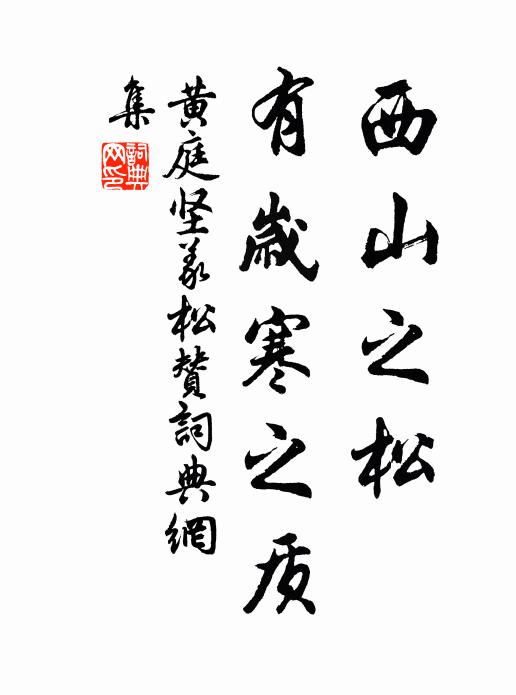 西山之松
有歲寒之质
黄庭坚义松赞詞典網
集
詞典网印